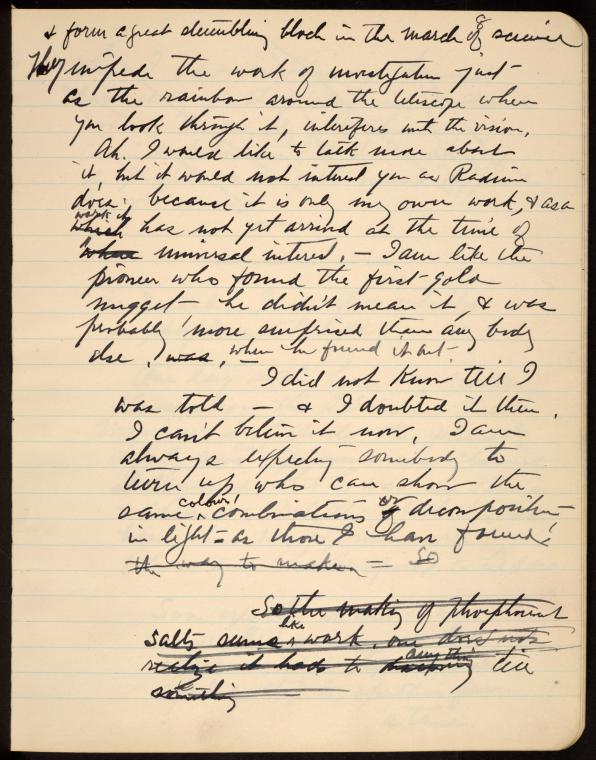 & form a great stumbling block in the march of science
They impede the work of investigation just
as the rainbow around the telescope when
you look through it, interferes with the vision.
Ah. I would like to talk more about
it, but it would not interest you as Radium
does; because it is only my own work, & as a
work it
which has not yet arrived at the time of
universal interest. – I am like the
pioneer who found the first gold
nugget – he didn't mean it, & was
probably more surprised than any body
else, was, when he found it out –
I did not know till I
was told – & I doubted it then.
I can't believe it now. I am
always expecting somebody to
turn up who can show the
colour
same combinations or decomposition
in light – as those I have found!
the way to make – So
So the making of Phosphorescent
like
salts seems work, one does not
any thing
realize it has to till
something